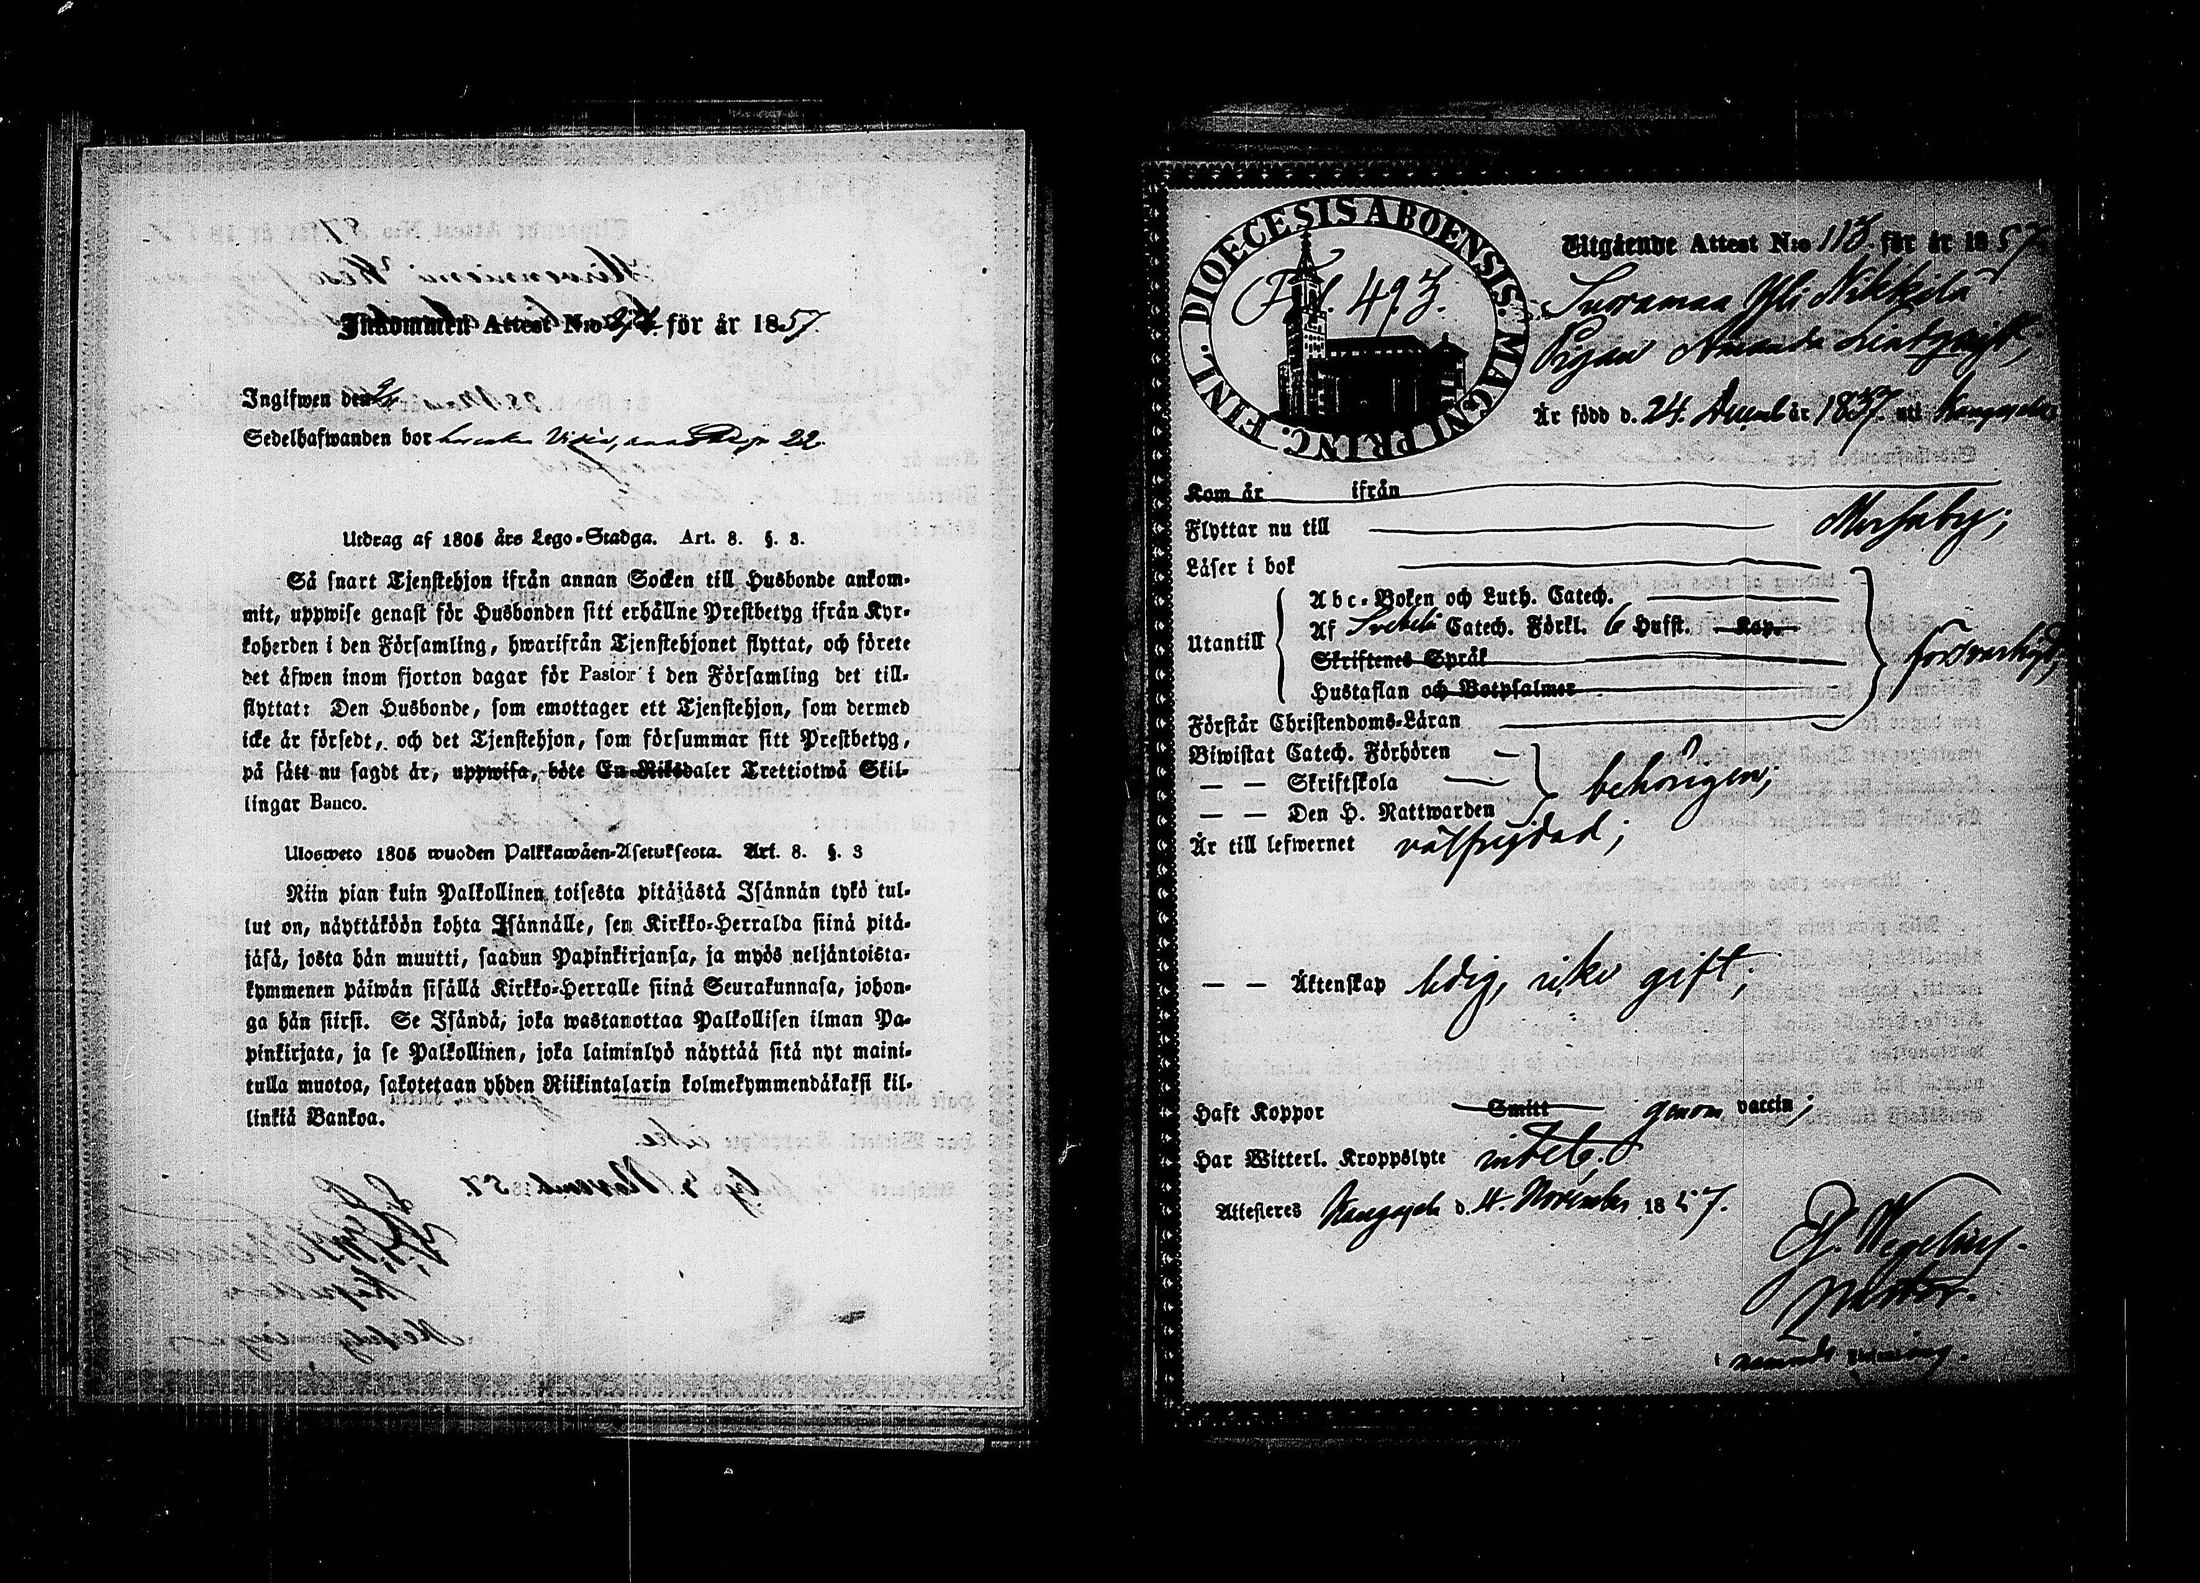 Inkommen Attest N:o för år 1857.
Ingifwen den
Sedelhafwanden bor 22.
Utdrag af 1805 års Lego-Stadga. Art. 8. §. 3.
Så snart Tjenstehjon ifrån annan Socken till Husbonde ankom-
mit, uppwise genast för Husbonden sitt erhållne Prestbetyg ifrån Kyr-
koherden i den Församling, hwarifrån Tjenstehjonet flyttat, och förete
det äfwen inom fjorton dagar för Pastor i den Församling det till-
flyttat: Den Husbonde, som emottager ett Tjenstehjon, som dermed
icke är försedt, och det Tjenstehjon, som försummar sitt Prestbetyg,
på sätt nu sagdt är, uppwisa, böte En Riksdaler Trettiotwå Skil-
lingar Banco.
Ulosweto 1805 wuoden Palkkawäen-Asetuksesta. Art. 8. §. 3
Niin pian kuin Palkollinen toisesta pitäjästä Isännän tykö tul-
lut on, näyttäköön kohta Isännälle, sen Kirkko-Herralda siinä pitä-
jäsä, josta hän muutti, saadun Papinkirjansa, ja myös neljäntoista-
kymmenen päiwän sisällä Kirkko-Herralle siinä Seurakunnasa, johon-
ga hän siirsi. Se Isändä, joka wastanottaa Palkollisen ilman Pa-
pinkirjata, ja se Palkollinen, joka laiminlyö näyttää sitä nyt maini-
tulla muotoa, sakotetaan yhden Riikintalarin kolmekymmendäkaksi kil-
linkiä Bankoa.
DIOECESIS ABOENSIS. MAGNI PRINC. FINL.
Fol. 493.
Utgående Attest N:o 113. för år 1857.
Suoramaa Yli Nikkilä
Pigan Amanda Lindqvist,
Är född d. 24 Decemb år 1837. uti Kangasala
Kom år ifrån
Flyttar nu till Messuby;
Läser i bok
Abc-Boken och Luth. Catech.
Utantill Af Svebeli Catech. Förkl. 6 Hufst. Kap. försvarligt;
Skriftenes Språk
Hustaflan och Botpsalmer
Förstår Christendoms-Läran
Biwistat Catech. Förhören
— — Skriftskola behörigen;
— — Den H. Nattwarden
Är till lefwernet välfrejdad;
— — Äktenskap ledig, icke gift;
Haft Koppor Smitt genom vaccin;
Har Witterl. Kroppslyte intet;
Attesteres Kangasala d. 4. November 1857.
Wegelius.